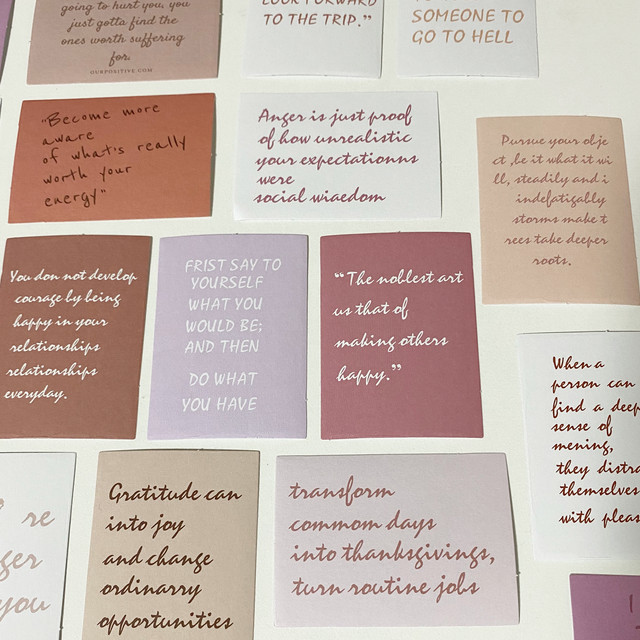 going to hurt you, you
just gotta find the
ones worth suffering
for.
OURPOSITIVE.COM
LOOK FORWARD
TO THE TRIP.”
SOMEONE TO
GO TO HELL
"Become more
aware
of what's really
worth your
energy"
Anger is just proof
of how unrealistic
your expectationns
were
social wiaedom
Pursue your obje
ct ,be it what it wi
ll, steadily and i
indefatigably
storms make t
rees take deeper
roots.
You don not develop
courage by being
happy in your
relationships
relationships
everyday.
FRIST SAY TO
YOURSELF
WHAT YOU
WOULD BE;
AND THEN
DO WHAT
YOU HAVE
“The noblest art
us that of
making others
happy.”
When a
person can
find a deep
sense of
mening,
they distra
themselves
with pleas
re
ger
you
Gratitude can
into joy
and change
ordinarry
opportunities
transform
commom days
into thanksgivings,
turn routine jobs